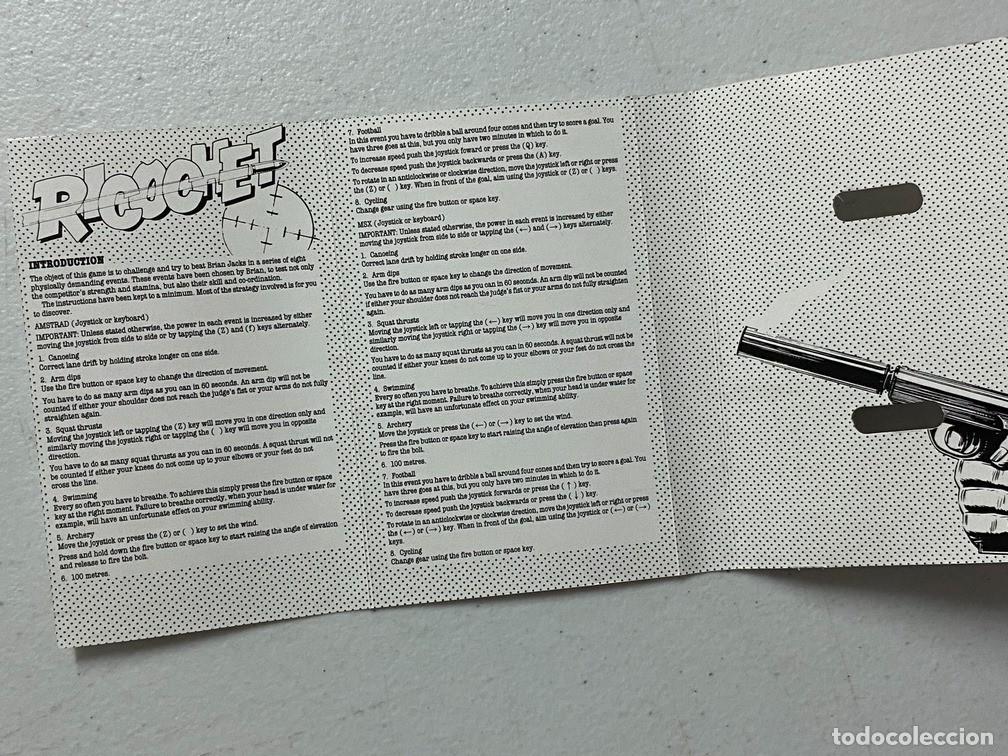 RICOCHET
INTRODUCTION
The object of this game is to challenge and try to beat Brian Jacks in a series of eight
physically demanding events. These events have been chosen by Brian, to test not only
the competitor's strength and stamina, but also their skill and co-ordination.
The instructions have been kept to a minimum. Most of the strategy involved is for you
to discover.
AMSTRAD (Joystick or keyboard)
IMPORTANT: Unless stated otherwise, the power in each event is increased by either
moving the joystick from side to side or by tapping the (Z) and (f) keys alternately.
1. Canoeing
Correct lane drift by holding stroke longer on one side.
2. Arm dips
Use the fire button or space key to change the direction of movement.
You have to do as many arm dips as you can in 60 seconds. An arm dip will not be
counted if either your shoulder does not reach the judge's fist or your arms do not fully
straighten again.
3. Squat thrusts
Moving the joystick left or tapping the (Z) key will move you in one direction only and
similarly moving the joystick right or tapping the ( ) key will move you in opposite
direction.
You have to do as many squat thrusts as you can in 60 seconds. A squat thrust will not
be counted if either your knees do not come up to your elbows or your feet do not
cross the line.
4. Swimming
Every so often you have to breathe. To achieve this simply press the fire button or space
key at the right moment. Failure to breathe correctly, when your head is under water for
example, will have an unfortunate effect on your swimming ability.
5. Archery
Move the joystick or press the (Z) or ( ) key to set the wind.
Press and hold down the fire button or space key to start raising the angle of elevation
and release to fire the bolt.
6. 100 metres.
7. Football
In this event you have to dribble a ball around four cones and then try to score a goal. You
have three goes at this, but you only have two minutes in which to do it.
To increase speed push the joystick foward or press the (Q) key.
To decrease speed push the joystick backwards or press the (A) key.
To rotate in an anticlockwise or clockwise direction, move the joystick left or right or press
the (Z) or ( ) key. When in front of the goal, aim using the joystick or (Z) or ( ) keys.
8. Cycling
Change gear using the fire button or space key.
MSX (Joystick or keyboard)
IMPORTANT: Unless stated otherwise, the power in each event is increased by either
moving the joystick from side to side or tapping the (←) and (→) keys alternately.
1. Canoeing
Correct lane drift by holding stroke longer on one side.
2. Arm dips
Use the fire button or space key to change the direction of movement.
You have to do as many arm dips as you can in 60 seconds. An arm dip will not be counted
if either your shoulder does not reach the judge's fist or your arms do not fully straighten
again.
3. Squat thrusts
Moving the joystick left or tapping the (←) key will move you in one direction only and
similarly moving the joystick right or tapping the (→) key will move you in opposite
direction.
You have to do as many squat thrusts as you can in 60 seconds. A squat thrust will not be
counted if either your knees do not come up to your elbows or your feet do not cross the
line.
4. Swimming
Every so often you have to breathe. To achieve this simply press the fire button or space
key at the right moment. Failure to breathe correctly, when your head is under water for
example, will have an unfortunate effect on your swimming ability.
5. Archery
Move the joystick or press the (←) or (→) key to set the wind.
Press the fire button or space key to start raising the angle of elevation then press again
to fire the bolt.
6. 100 metres.
7. Football
In this event you have to dribble a ball around four cones and then try to score a goal. You
have three goes at this, but you only have two minutes in which to do it.
To increase speed push the joystick forwards or press the (↑) key.
To decrease speed push the joystick backwards or press the (↓) key.
To rotate in an anticlockwise or clockwise direction, move the joystick left or right or press
the (←) or (→) key. When in front of the goal, aim using the joystick or (←) or (→)
keys.
8. Cycling
Change gear using the fire button or space key.
todocoleccion